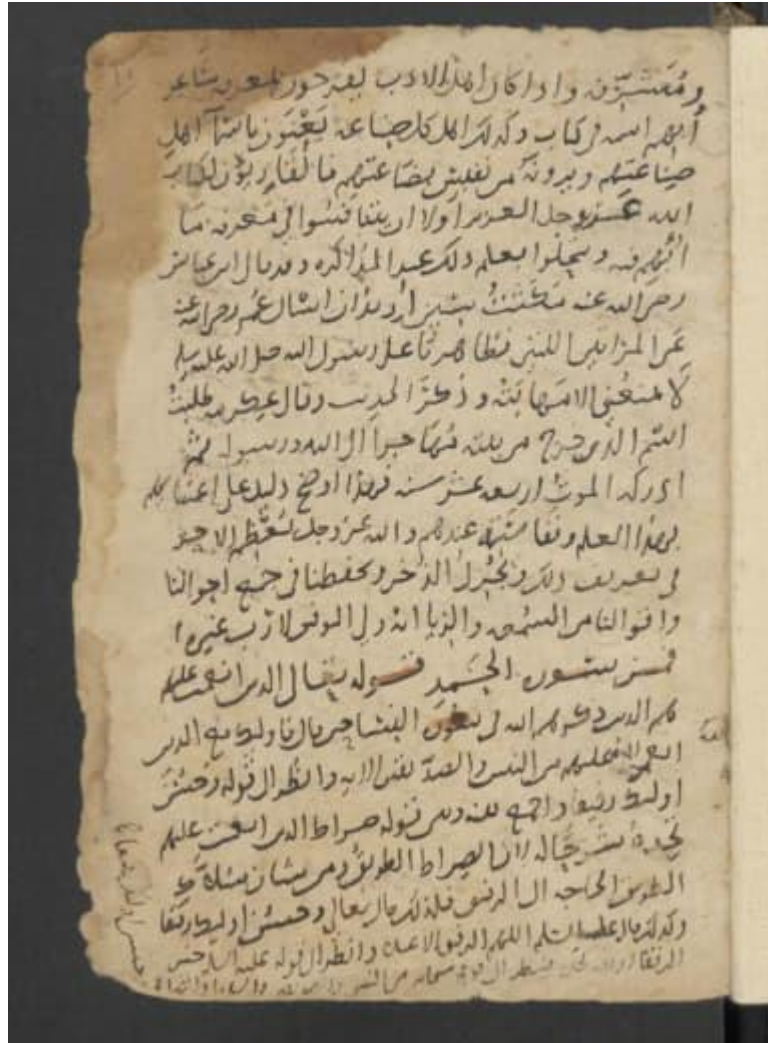 ومفسرون واذا كان اهل الادب يفرحون بمعرفة شاعر
أبهم اسمه في كتاب وكذلك اهل كل صناعة يعنون باسماء اهل
صناعتهم ويرونه من نفيس بضاعتهم فالقارئون لكتاب
الله عز وجل العزيز اولا ان يتنافسوا في معرفة ما
أبهم فيه ويتحلوا بعلم ذلك عند المذاكرة وقد قال ابن عباس
رضي الله عنه مكثت سنين أريد ان اسال عمر رضي الله عنه
عن المراتين اللتين تظاهرتا على رسول الله صلى الله عليه وسلم
لا يمنعني الا مهابته وذكر الحديث وقال عكرمة طلبت
اسم الذي خرج من بيته مهاجرا الى الله ورسوله ثم
ادركه الموت اربع عشرة سنة فهذا اوضح دليل على اعتنائهم
بهذا العلم ونفاسته عندهم والله عز وجل يعظم الاجر
في تعريف ذلك ويجزل الذخر ويحفظنا في جميع احوالنا
واقوالنا من السمعة والريا انه ولي التوفيق لا رب غيره
فمن سورة الحمد قوله تعالى الذين انعمت عليهم
هم الذين ذكرهم الله في سورة النساء حين قال فاولئك مع الذين
انعم الله عليهم من النبيين والصديقين الاية وانظر الى قوله وحسن
اولئك رفيقا واجمع بينه وبين قوله صراط الذين انعمت عليهم
الطريق الحاجة الى الرفيق فلذلك قال تعالى وحسن اولئك رفيقا
وكذلك قال عليه السلم اللهم الرفيق الاعلى وانظر الى قوله عليه السلام حين